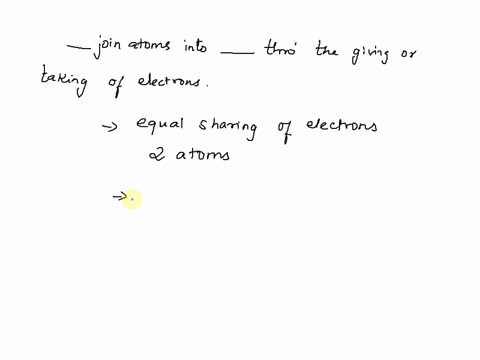 ___ join atoms into ___ thro' the giving or
taking of electrons.
→ equal sharing of electrons
2 atoms
→ .